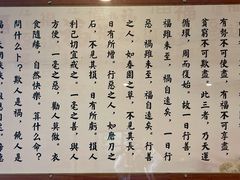 有勢不可使盡。有福不可享盡。
貧窮不可欺盡。此三者,乃天運
循環,周而復始。故一日行善,
福雖未至,禍自遠矣。一日行
惡,禍雖未至,福自遠矣。行善
之人,如春園之草,不見其長,
日有所增。行惡之人,如磨刀之
石,不見其損,日有所虧。損人
利己切宜戒之。一毫之善,與人
方便。一毫之惡,勸人莫做。衣
食隨緣,自然快樂。算什么命?
問什么卜?欺人是禍,饒人是